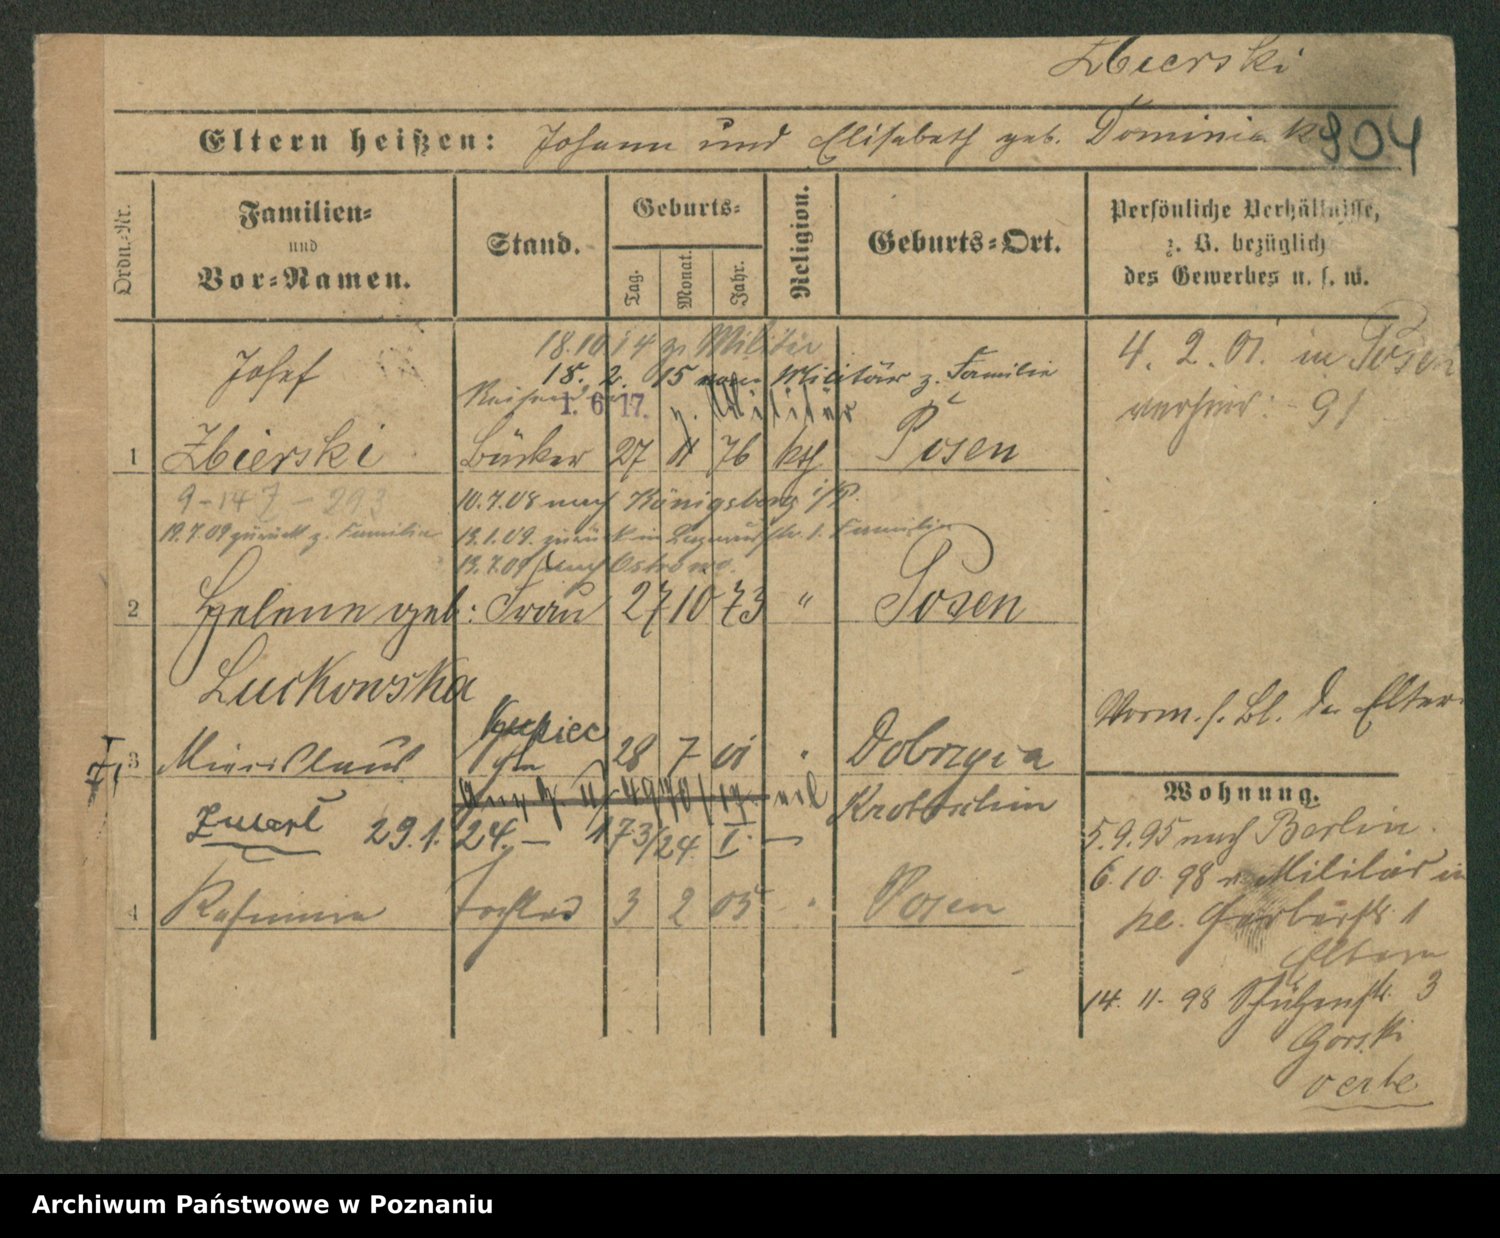 Zbierski
Eltern heißen: Johann und Elisabeth geb. Dominiak
904
Ordn.-Nr.
Familien-
und
Vor-Namen.
Stand.
Geburts-
Tag.
Monat.
Jahr.
Religion.
Geburts-Ort.
Persönliche Verhältnisse,
z. B. bezüglich
des Gewerbes u. s. w.
18.10 14 zr Militär
15. 2. 15 vom Militär z. Familie
1. 6 17. z. Militär
Josef
1 Zbierski Bäcker 27 11 76 kth Posen
4. 2. 01. in Posen
verheir: 91
9-147-293
10.7.08 nach Königsberg i/P.
19.7.09 zurück z. Familie
13.1.09. zurück in
Familie
13.7.09 nach Ostrowo.
2 Helene geb: Frau 27 10 73 " Posen
Luckowska
Kupiec
3 Mieczislaus 28 7 01 " Dobrzyca
Krotoschin
Vorm. s. Bl. der Eltern
Zmarł 29.1. 24. — 173/24 I. —
4 Kasimira Tochter 3 2 05 " Posen
Wohnung.
5.9.95 nach Berlin.
6.10.98 v. Militär in
pe. Gerberstr. 1
Eltern
14. 11. 98 Schützenstr. 3
Gorski
verte
Archiwum Państwowe w Poznaniu